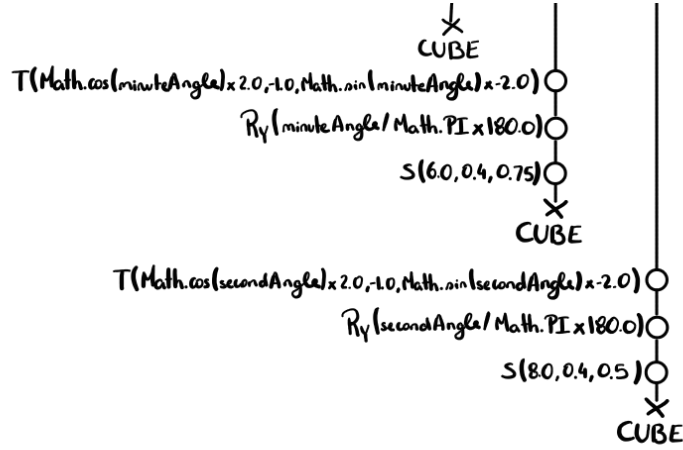 CUBE
T(Math.cos(minuteAngle)x2.0,-1.0,Math.sin(minuteAngle)x-2.0)
Ry(minuteAngle/Math.PIx180.0)
S(6.0,0.4,0.75)
CUBE
T(Math.cos(secondAngle)x2.0,-1.0,Math.sin(secondAngle)x-2.0)
Ry(secondAngle/Math.PIx180.0)
S(8.0,0.4,0.5)
CUBE